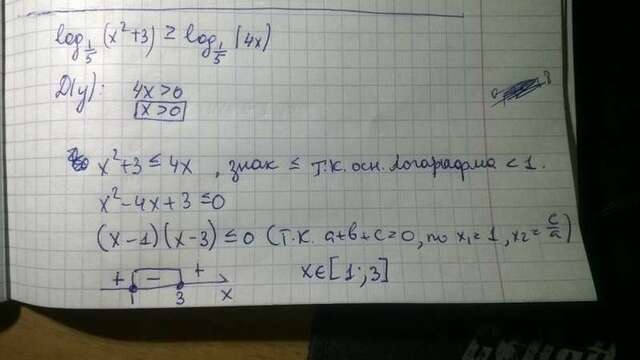 log_{1/5} (x²+3) ≥ log_{1/5} (4x)
D(y): 4x>0
x>0
x²+3 ≤ 4x , знак ≤ т.к. осн. логарафма < 1.
x²-4x+3 ≤ 0
(x-1)(x-3) ≤ 0 (т.к. a+b+c=0, то x₁=1, x₂=c/a)
+ − +
1 3 x
x∈[1;3]